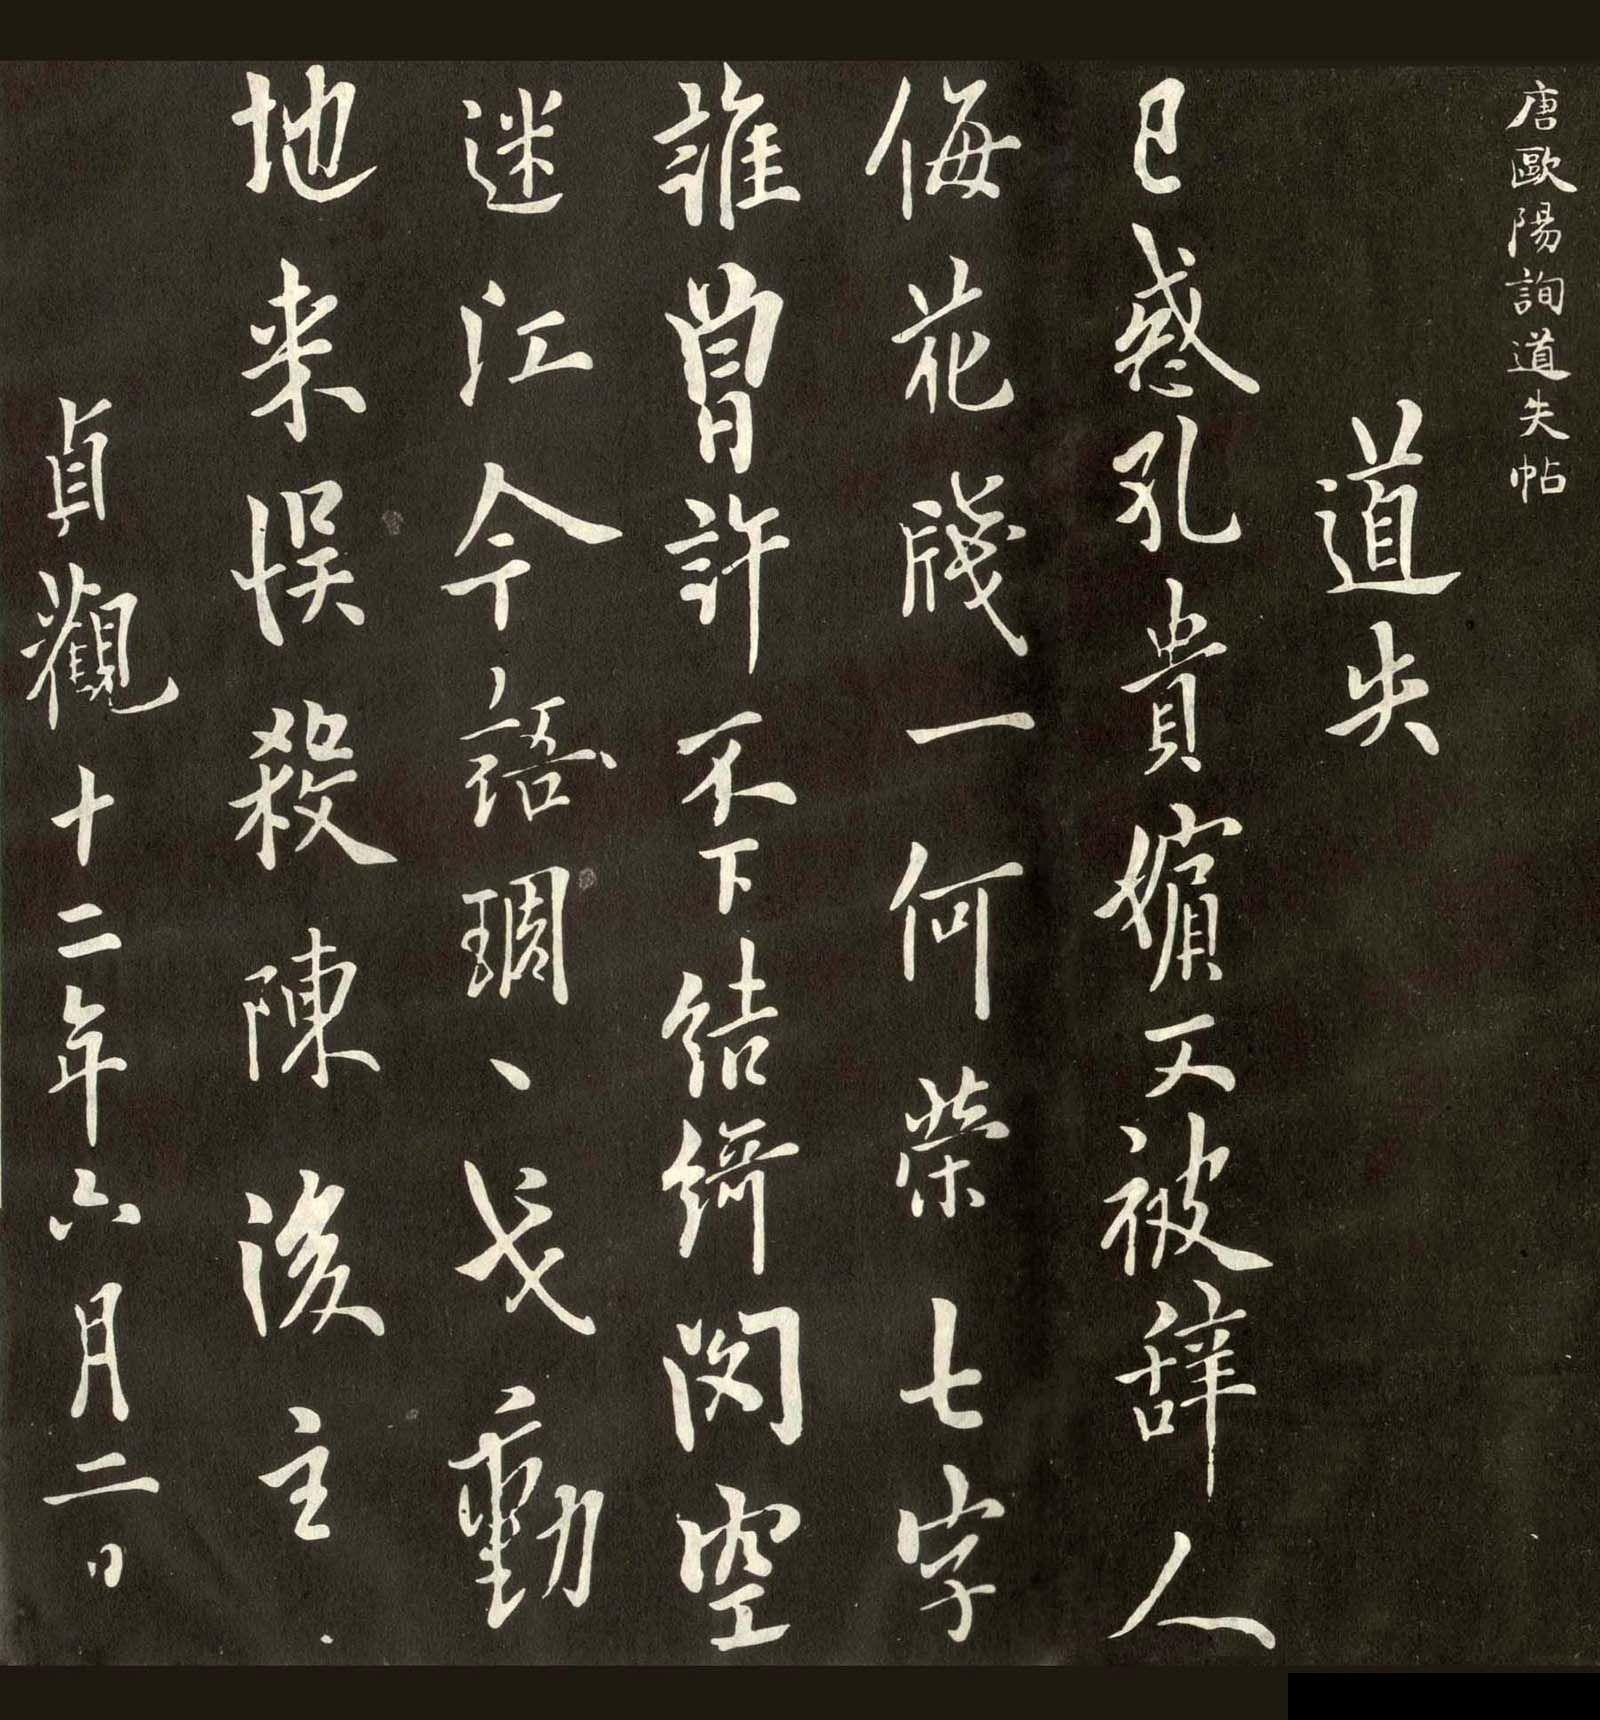 唐歐陽詢道失帖
道失
已惑孔貴嬪又被辞人
侮花牋一何荣七字
誰曾許不下結綺閣空
迷江令語琱、戈動
地来悮殺陳後主
貞觀十二年六月二日